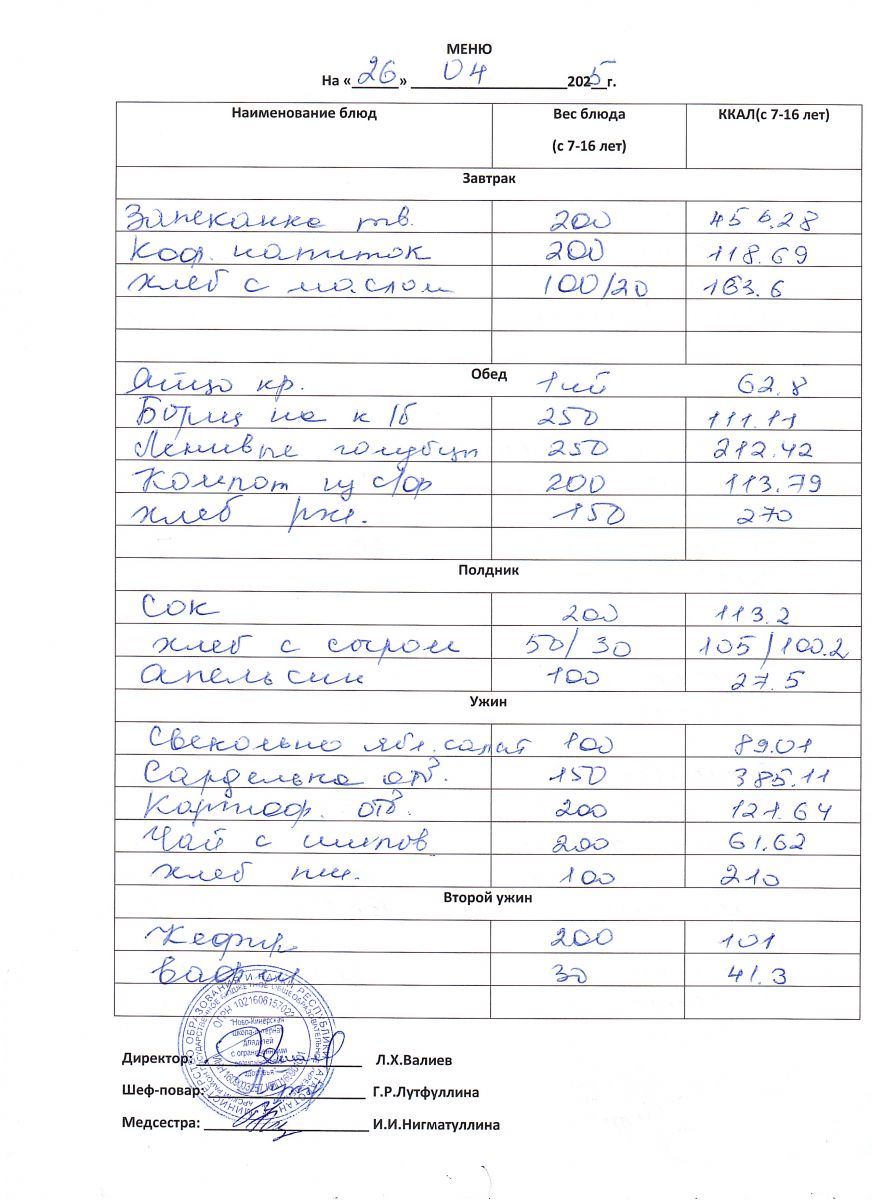 МЕНЮ
На «26» 04 2025 г.
Наименование блюд Вес блюда (с 7-16 лет) ККАЛ(с 7-16 лет)
Завтрак
Запеканка тв. 200 456.28
Коф. напиток 200 118.69
Хлеб с маслом 100/20 163.6
Обед
Яйцо кр. 1шт 62.8
Борщ на к/б 250 111.11
Ленивые голубцы 250 212.42
Компот из с/ф 200 113.79
Хлеб рж. 150 270
Полдник
Сок 200 113.2
хлеб с сыром 50/30 105/100.2
Апельсин 100 27.5
Ужин
Свекольно ябл. салат 100 89.01
Сарделька отв. 150 385.11
Картоф. отв. 200 121.64
Чай с шипов 200 61.62
хлеб пш. 100 210
Второй ужин
Кефир 200 101
Вафли 30 41.3
Директор: Л.Х.Валиев
Шеф-повар: Г.Р.Лутфуллина
Медсестра: И.И.Нигматуллина